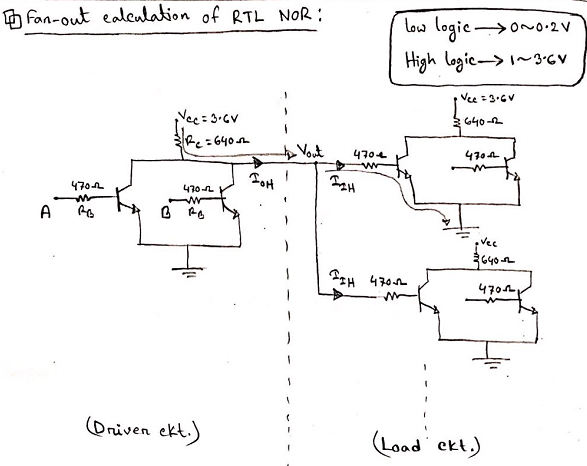 Fan-out calculation of RTL NOR:
Low logic → 0~0.2V
High logic → 1~3.6V
Vcc = 3.6V
Rc = 640Ω
Vout
470Ω
A
RB
470Ω
B
RB
IOH
IIH
470Ω
Vcc = 3.6V
640Ω
470Ω
Vcc
640Ω
IIH
470Ω
470Ω
(Driver ckt.)
(Load ckt.)